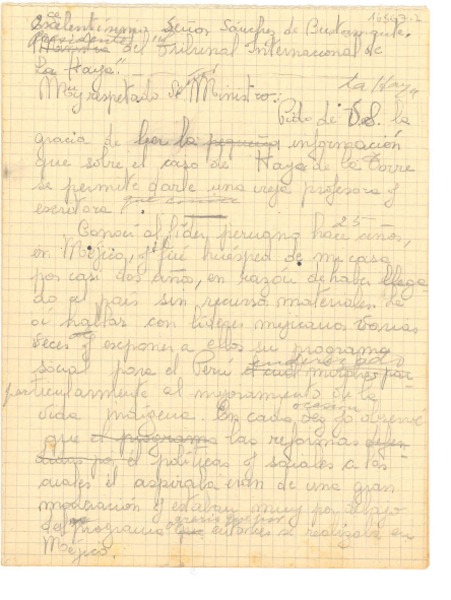 16593-2
Excelentísimo Señor Sánchez de Bustamante.
Presidente del Tribunal Internacional de
La Haya".
La Haya
Muy respetado Sr Ministro:
Pido de V.S. la
gracia de información
que sobre el caso de Haya de la Torre
se permite darle una vieja profesora y
escritora.
Conocí al líder peruano hace 25 años,
en Méjico, y fué huésped de mi casa
por casi dos años, en razón de haber llega
do al país sin recursos materiales. Le
oí hablar con líderes mejicanos varias
veces y exponer a ellos su programa
social para el Perú
particularmente al mejoramiento de la
vida indígena. En cada ocasión observé
que el programa las reformas
políticas y sociales a las
cuales él aspiraba eran de una gran
moderación y estaban muy por debajo
del programa que entonces se realizaba en
Méjico.